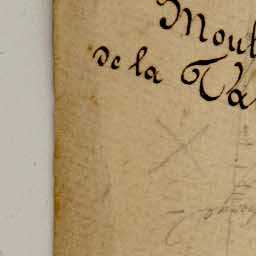 Moul
de la Va